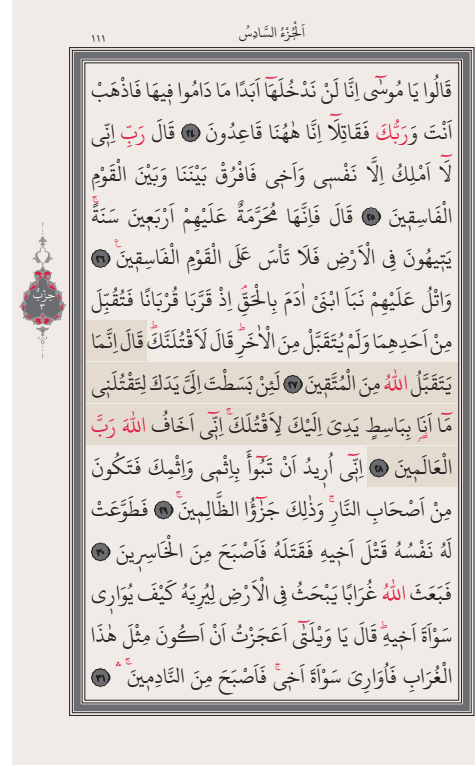 اَلْجُزْءُ السَّادِسُ
١١١
قَالُوا يَا مُوسٰٓى اِنَّا لَنْ نَدْخُلَهَٓا اَبَدًا مَا دَامُوا ف۪يهَا فَاذْهَبْ
اَنْتَ وَرَبُّكَ فَقَاتِلَٓا اِنَّا هٰهُنَا قَاعِدُونَ ﴿٢٤﴾ قَالَ رَبِّ اِنّ۪ي
لَٓا اَمْلِكُ اِلَّا نَفْس۪ي وَاَخ۪ي فَافْرُقْ بَيْنَنَا وَبَيْنَ الْقَوْمِ
الْفَاسِق۪ينَ ﴿٢٥﴾ قَالَ فَاِنَّهَا مُحَرَّمَةٌ عَلَيْهِمْ اَرْبَع۪ينَ سَنَةًۚ
يَت۪يهُونَ فِي الْاَرْضِ فَلَا تَأْسَ عَلَى الْقَوْمِ الْفَاسِق۪ينَ۟ ﴿٢٦﴾
وَاتْلُ عَلَيْهِمْ نَبَاَ ابْنَيْ اٰدَمَ بِالْحَقِّۢ اِذْ قَرَّبَا قُرْبَانًا فَتُقُبِّلَ
مِنْ اَحَدِهِمَا وَلَمْ يُتَقَبَّلْ مِنَ الْاٰخَرِۜ قَالَ لَاَقْتُلَنَّكَۜ قَالَ اِنَّمَا
يَتَقَبَّلُ اللّٰهُ مِنَ الْمُتَّق۪ينَ ﴿٢٧﴾ لَئِنْ بَسَطْتَ اِلَيَّ يَدَكَ لِتَقْتُلَن۪ي
مَٓا اَنَا۬ بِبَاسِطٍ يَدِيَ اِلَيْكَ لِاَقْتُلَكَۚ اِنّ۪ٓي اَخَافُ اللّٰهَ رَبَّ
الْعَالَم۪ينَ ﴿٢٨﴾ اِنّ۪ٓي اُر۪يدُ اَنْ تَبُٓوأَ بِاِثْم۪ي وَاِثْمِكَ فَتَكُونَ
مِنْ اَصْحَابِ النَّارِۚ وَذٰلِكَ جَزٰٓؤُا الظَّالِم۪ينَۚ ﴿٢٩﴾ فَطَوَّعَتْ
لَهُ نَفْسُهُ قَتْلَ اَخ۪يهِ فَقَتَلَهُ فَاَصْبَحَ مِنَ الْخَاسِر۪ينَ ﴿٣٠﴾
فَبَعَثَ اللّٰهُ غُرَابًا يَبْحَثُ فِي الْاَرْضِ لِيُرِيَهُ كَيْفَ يُوَار۪ي
سَوْاَةَ اَخ۪يهِۜ قَالَ يَا وَيْلَتٰٓى اَعَجَزْتُ اَنْ اَكُونَ مِثْلَ هٰذَا
الْغُرَابِ فَاُوَارِيَ سَوْاَةَ اَخ۪يۚ فَاَصْبَحَ مِنَ النَّادِم۪ينَۚۛ ﴿٣١﴾
حزب